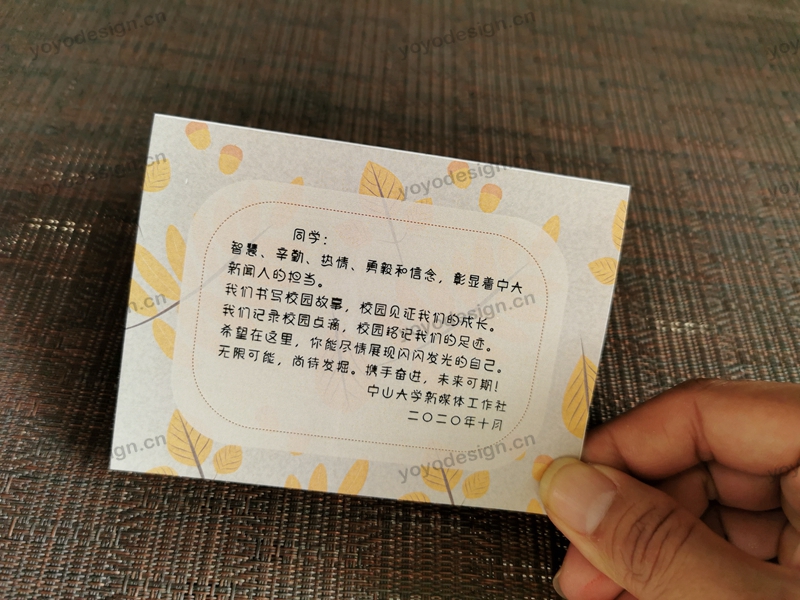 同学：
智慧、辛勤、热情、勇毅和信念，彰显着中大
新闻人的担当。
我们书写校园故事，校园见证我们的成长。
我们记录校园点滴，校园铭记我们的足迹。
希望在这里，你能尽情展现闪闪发光的自己。
无限可能，尚待发掘。携手奋进，未来可期！
中山大学新媒体工作社
二〇二〇年十月
yoyodesign.cn
yoyodesign.cn
yoyodesign.cn
yoyodesign.cn
yoyodesign.cn
yoyodesign.cn
yoyodesign.cn